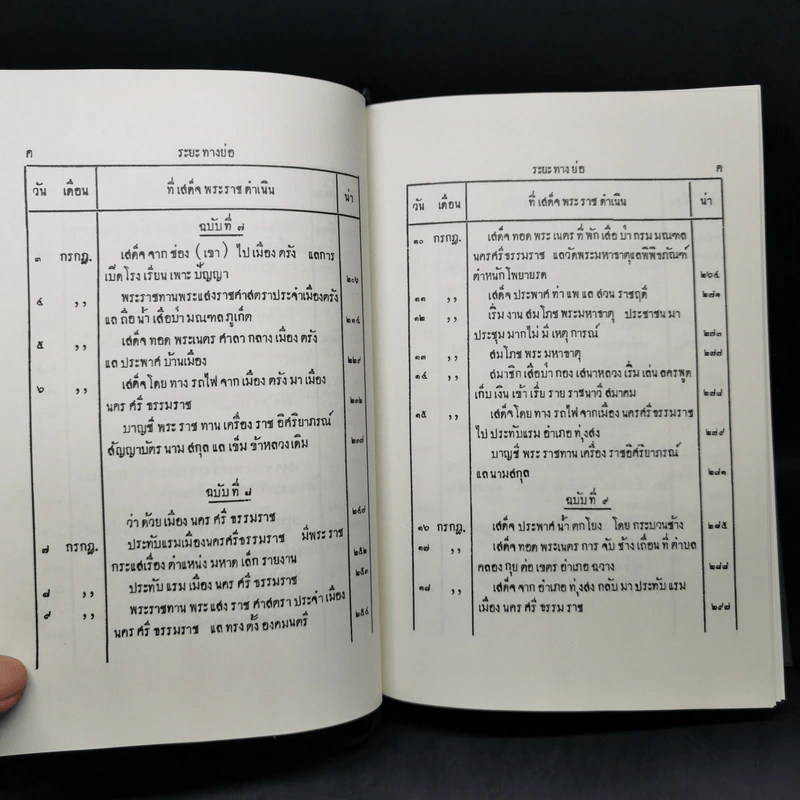 ค
ระยะทางย่อ
วัน เดือน ที่เสด็จพระราชดำเนิน น่า
ฉบับที่ ๗
๓ กรกฎ. เสด็จจากช่อง (เขา) ไปเมืองตรัง แลการ
เปิดโรงเรียนเพาะปัญญา ๒๐๖
๔ ,, พระราชทานพระแสงราชศาสตราประจำเมืองตรัง
แลถือน้ำเสือป่ามณฑลภูเก็ต ๒๑๔
๕ ,, เสด็จทอดพระเนตรศาลากลางเมืองตรัง
แลประพาศบ้านเมือง ๒๒๙
๖ ,, เสด็จโดยทางรถไฟจากเมืองตรังมาเมือง
นครศรีธรรมราช ๒๓๒
บาญชีพระราชทานเครื่องราชอิศริยาภรณ์
สัญญาบัตรนามสกุลแลเข็มข้าหลวงเดิม ๒๓๗
ฉบับที่ ๘
ว่าด้วยเมืองนครศรีธรรมราช ๒๔๗
๗ กรกฎ. ประทับแรมเมืองนครศรีธรรมราช มีพระราช
กระแสเรื่องตำแหน่งมหาดเล็กรายงาน ๒๕๒
๘ ,, ประทับแรมเมืองนครศรีธรรมราช ๒๕๓
๙ ,, พระราชทานพระแสงราชศาสตราประจำเมือง
นครศรีธรรมราช แลทรงตั้งองคมนตรี ๒๕๔
ระยะทางย่อ
ฅ
วัน เดือน ที่เสด็จพระราชดำเนิน น่า
๑๐ กรกฎ. เสด็จทอดพระเนตรที่พักเสือป่ากรมมณฑล
นครศรีธรรมราช แลวัดพระมหาธาตุแลพิพิธภัณฑ์
ตำหนักโพยายรด ๒๖๔
๑๑ ,, เสด็จประพาศท่าแพแลสวนราชฤดี ๒๗๑
๑๒ ,, เริ่มงานสมโภชพระมหาธาตุ ประชาชนมา
ประชุมมากไม่มีเหตุการณ์ ๒๗๓
๑๓ ,, สมโภชพระมหาธาตุ ๒๗๗
๑๔ ,, สมาชิกเสือป่ากองเสนาหลวงเริ่มเล่นลครพูด
เก็บเงินเข้าเรี่ยรายราชนาวีสมาคม ๒๗๘
๑๕ ,, เสด็จโดยทางรถไฟจากเมืองนครศรีธรรมราช
ไปประทับแรมอำเภอทุ่งสง ๒๗๙
บาญชีพระราชทานเครื่องราชอิศริยาภรณ์
แลนามสกุล ๒๘๑
ฉบับที่ ๙
๑๖ กรกฎ. เสด็จประพาศน้ำตกโยง โดยกระบวนช้าง ๒๘๕
๑๗ ,, เสด็จทอดพระเนตรการจับช้างเถื่อนที่ตำบล
คลองกุยต่อเขตอำเภอฉวาง ๒๘๘
๑๘ ,, เสด็จจากอำเภอทุ่งสงกลับมาประทับแรม
เมืองนครศรีธรรมราช ๒๙๗